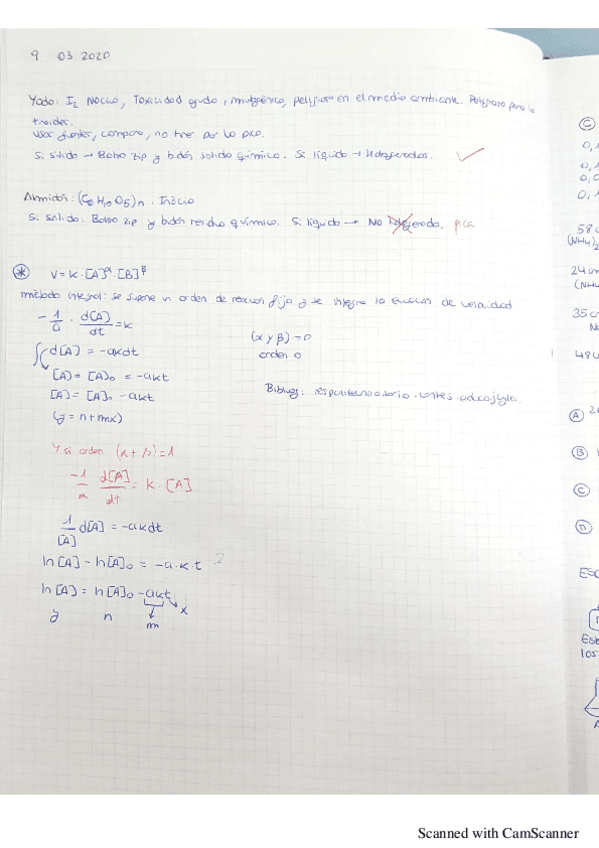 9 03 2020
Yodo: I2 Nocivo, Toxicidad aguda, mutagénico, peligroso en el medio ambiente. Peligroso para la
tiroides.
Usar guantes, campana, no tirar por la pica.
Si sólido → Bolsa zip y bidón solido químico. Si líquido → Halogenados.
Almidón: (C6H10O5)n. Inocuo
Si sólido: Bolsa zip y bidón residuo químico. Si líquido → No pica
* V = k · [A]^α · [B]^β
método integral: se supone un orden de reacción fijo y se integra la ecuación de velocidad
- 1/a · d[A]/dt = k
(α y β) = 0
orden 0
∫ d[A] = -akdt
[A] = [A]0 = -akt
[A] = [A]0 - akt
(y = n + mx)
Y si orden (α + β) = 1
-1/a d[A]/dt = k · [A]
1/[A] d[A] = -akdt
ln[A] - ln[A]0 = -a·k·t ?
ln[A] = ln[A]0 - akt
y n m x
C
0,1
0,1
0,0
0,1
58 c
(NH4)2
24 cm
(NH4
35 c
N
48 c
A 2
B
C
D
ESC
Este
los
Scanned with CamScanner